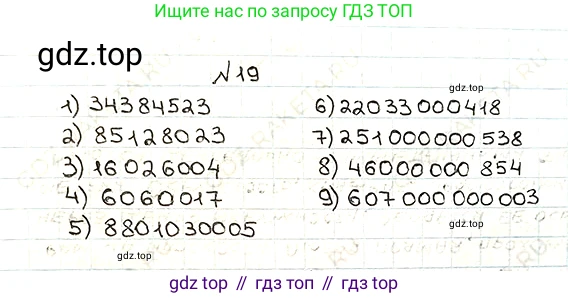 Ищите нас по запросу ГДЗ ТОП
gdz.top
№19
gdz.top
1) 34384523
2) 85128023
3) 16026004
4) 6060017
5) 8801030005
6) 22033000418
7) 251000000538
8) 46000000854
9) 607000000003
gdz.top
gdz.top
gdz.top // гдз топ // гдз.топ